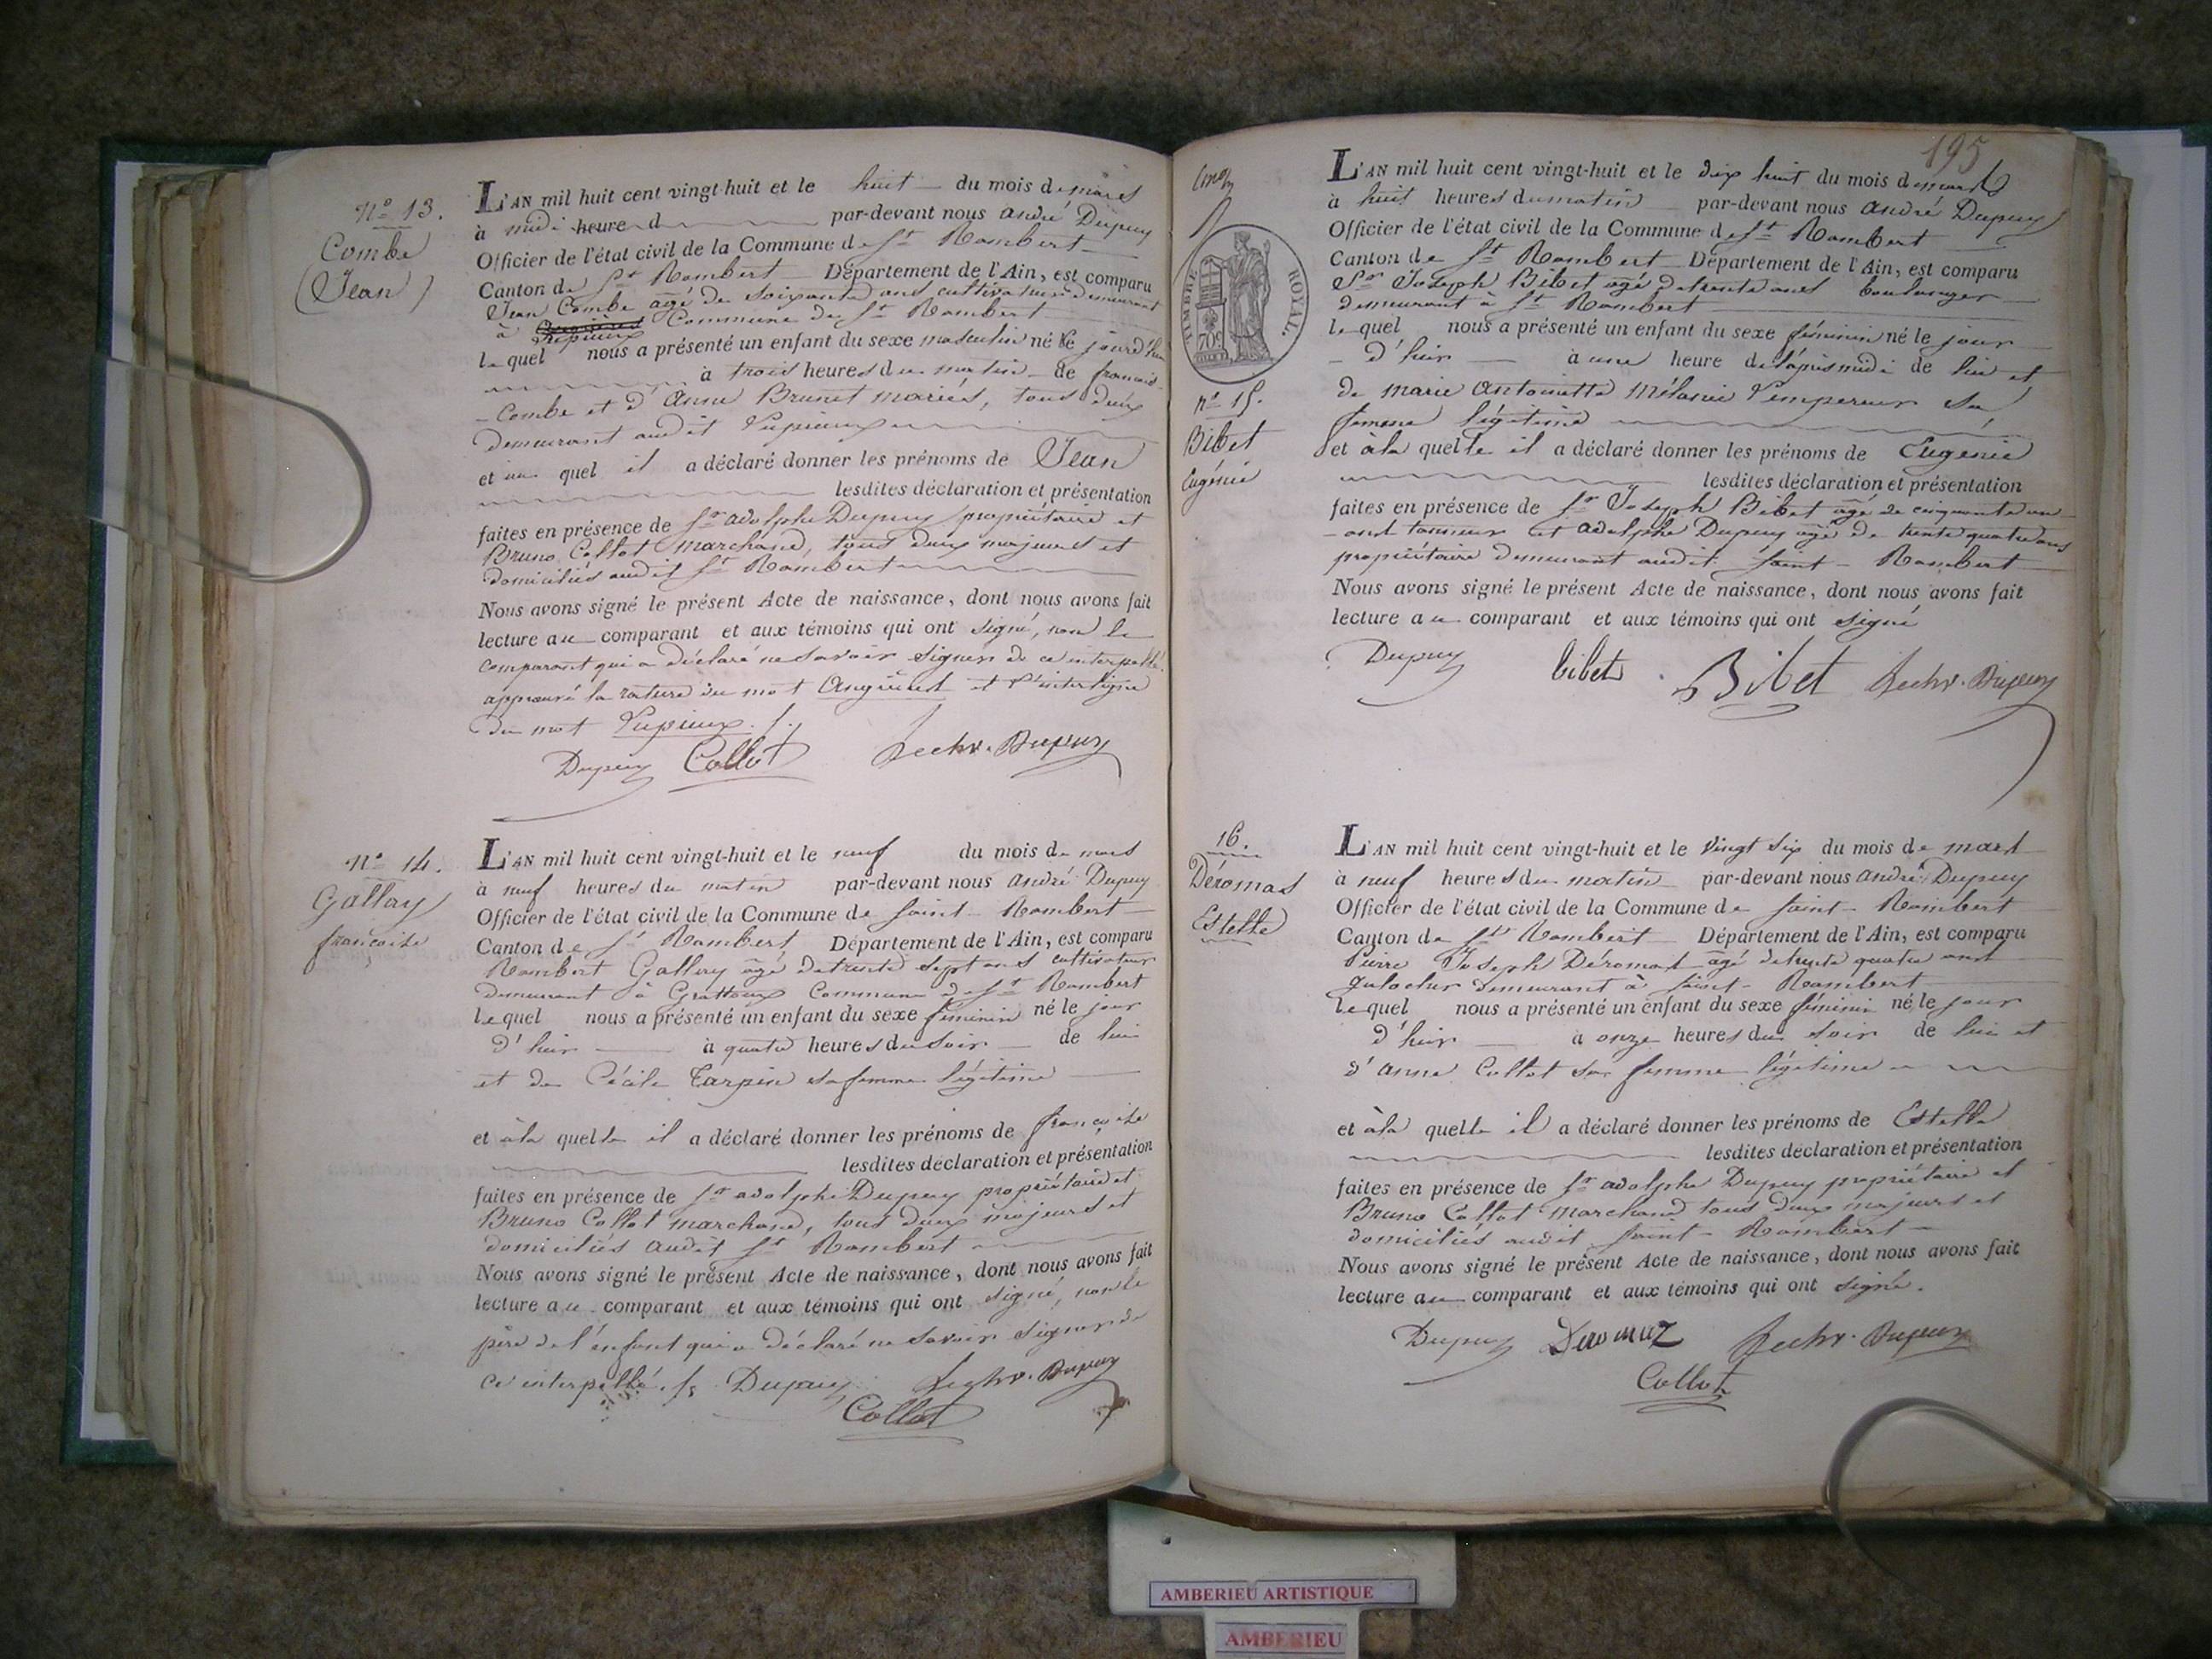 N° 13.
Combe
(Jean)
L'AN mil huit cent vingt-huit et le huit du mois de mars
à midi heure d par-devant nous André Dupuy
Officier de l'état civil de la Commune de St Rambert
Canton de St Rambert Département de l'Ain, est comparu
Jean Combe agé de soixante ans cultivateur demeurant
à Commune de St Rambert
Vupieux
lequel nous a présenté un enfant du sexe masculin né le jourd'hui
à trois heures du matin de francois
Combe et d'Anne Brunet mariés, tous deux
demeurant audit Vupieux
et au quel il a déclaré donner les prénoms de Jean
lesdites déclaration et présentation
faites en présence de Sr adolphe Dupuy propriétaire et
Bruno Collot marchand, tous deux majeurs et
domiciliés audit St Rambert
Nous avons signé le présent Acte de naissance, dont nous avons fait
lecture au comparant et aux témoins qui ont signé, non le
comparant qui a déclaré ne savoir signer de ce interpellé.
approuvé la rature du mot et l'interligne
du mot Vupieux ./.
Dupuy Collot Dupuy
N° 14.
Gallay
françoise
L'AN mil huit cent vingt-huit et le neuf du mois de mars
à neuf heures du matin par-devant nous André Dupuy
Officier de l'état civil de la Commune de Saint-Rambert
Canton de St Rambert Département de l'Ain, est comparu
Rambert Gallay âgé de trente sept ans cultivateur
demeurant à Grattoux Commune de St Rambert
lequel nous a présenté un enfant du sexe féminin né le jour
d'hier à quatre heures du soir de lui
et de Cécile Tarpin sa femme légitime
et à la quelle il a déclaré donner les prénoms de françoise
lesdites déclaration et présentation
faites en présence de Sr adolphe Dupuy propriétaire et
Bruno Collot marchand, tous deux majeurs et
domiciliés audit St Rambert
Nous avons signé le présent Acte de naissance, dont nous avons fait
lecture au comparant et aux témoins qui ont signé, non le
père de l'enfant qui a déclaré ne savoir signer de
ce interpellé. /. Dupuy Dupuy
Collot
195
TIMBRE ROYAL
70c
n° 15.
Bibet
Eugénie
L'AN mil huit cent vingt-huit et le dix huit du mois de mars
à huit heures du matin par-devant nous André Dupuy
Officier de l'état civil de la Commune de St Rambert
Canton de St Rambert Département de l'Ain, est comparu
Sr Joseph Bibet agé de trente ans boulanger
demeurant à St Rambert
lequel nous a présenté un enfant du sexe féminin né le jour
d'hier à une heure de l'après midi de lui et
de marie Antoinette Mélanie Vempereur sa
femme légitime
et à la quelle il a déclaré donner les prénoms de Eugenie
lesdites déclaration et présentation
faites en présence de Sr Joseph Bibet âgé de cinquante un
ans tanneur et adolphe Dupuy âgé de trente quatre ans
propriétaire demeurant audit Saint-Rambert
Nous avons signé le présent Acte de naissance, dont nous avons fait
lecture au comparant et aux témoins qui ont signé
Dupuy bibet Bibet Dupuy
16.
Déromas
Estelle
L'AN mil huit cent vingt-huit et le vingt six du mois de mars
à neuf heures du matin par-devant nous André Dupuy
Officier de l'état civil de la Commune de Saint-Rambert
Canton de St Rambert Département de l'Ain, est comparu
Pierre Joseph Déromas agé de trente quatre ans
demeurant à Saint-Rambert
lequel nous a présenté un enfant du sexe féminin né le jour
d'hier à onze heures du soir de lui et
d'Anne Collot sa femme légitime
et à la quelle il a déclaré donner les prénoms de Estelle
lesdites déclaration et présentation
faites en présence de Sr adolphe Dupuy propriétaire et
Bruno Collot marchand tous deux majeurs et
domiciliés audit Saint-Rambert
Nous avons signé le présent Acte de naissance, dont nous avons fait
lecture au comparant et aux témoins qui ont signé.
Dupuy Deromaz Dupuy
Collot
AMBERIEU ARTISTIQUE
AMBERIEU